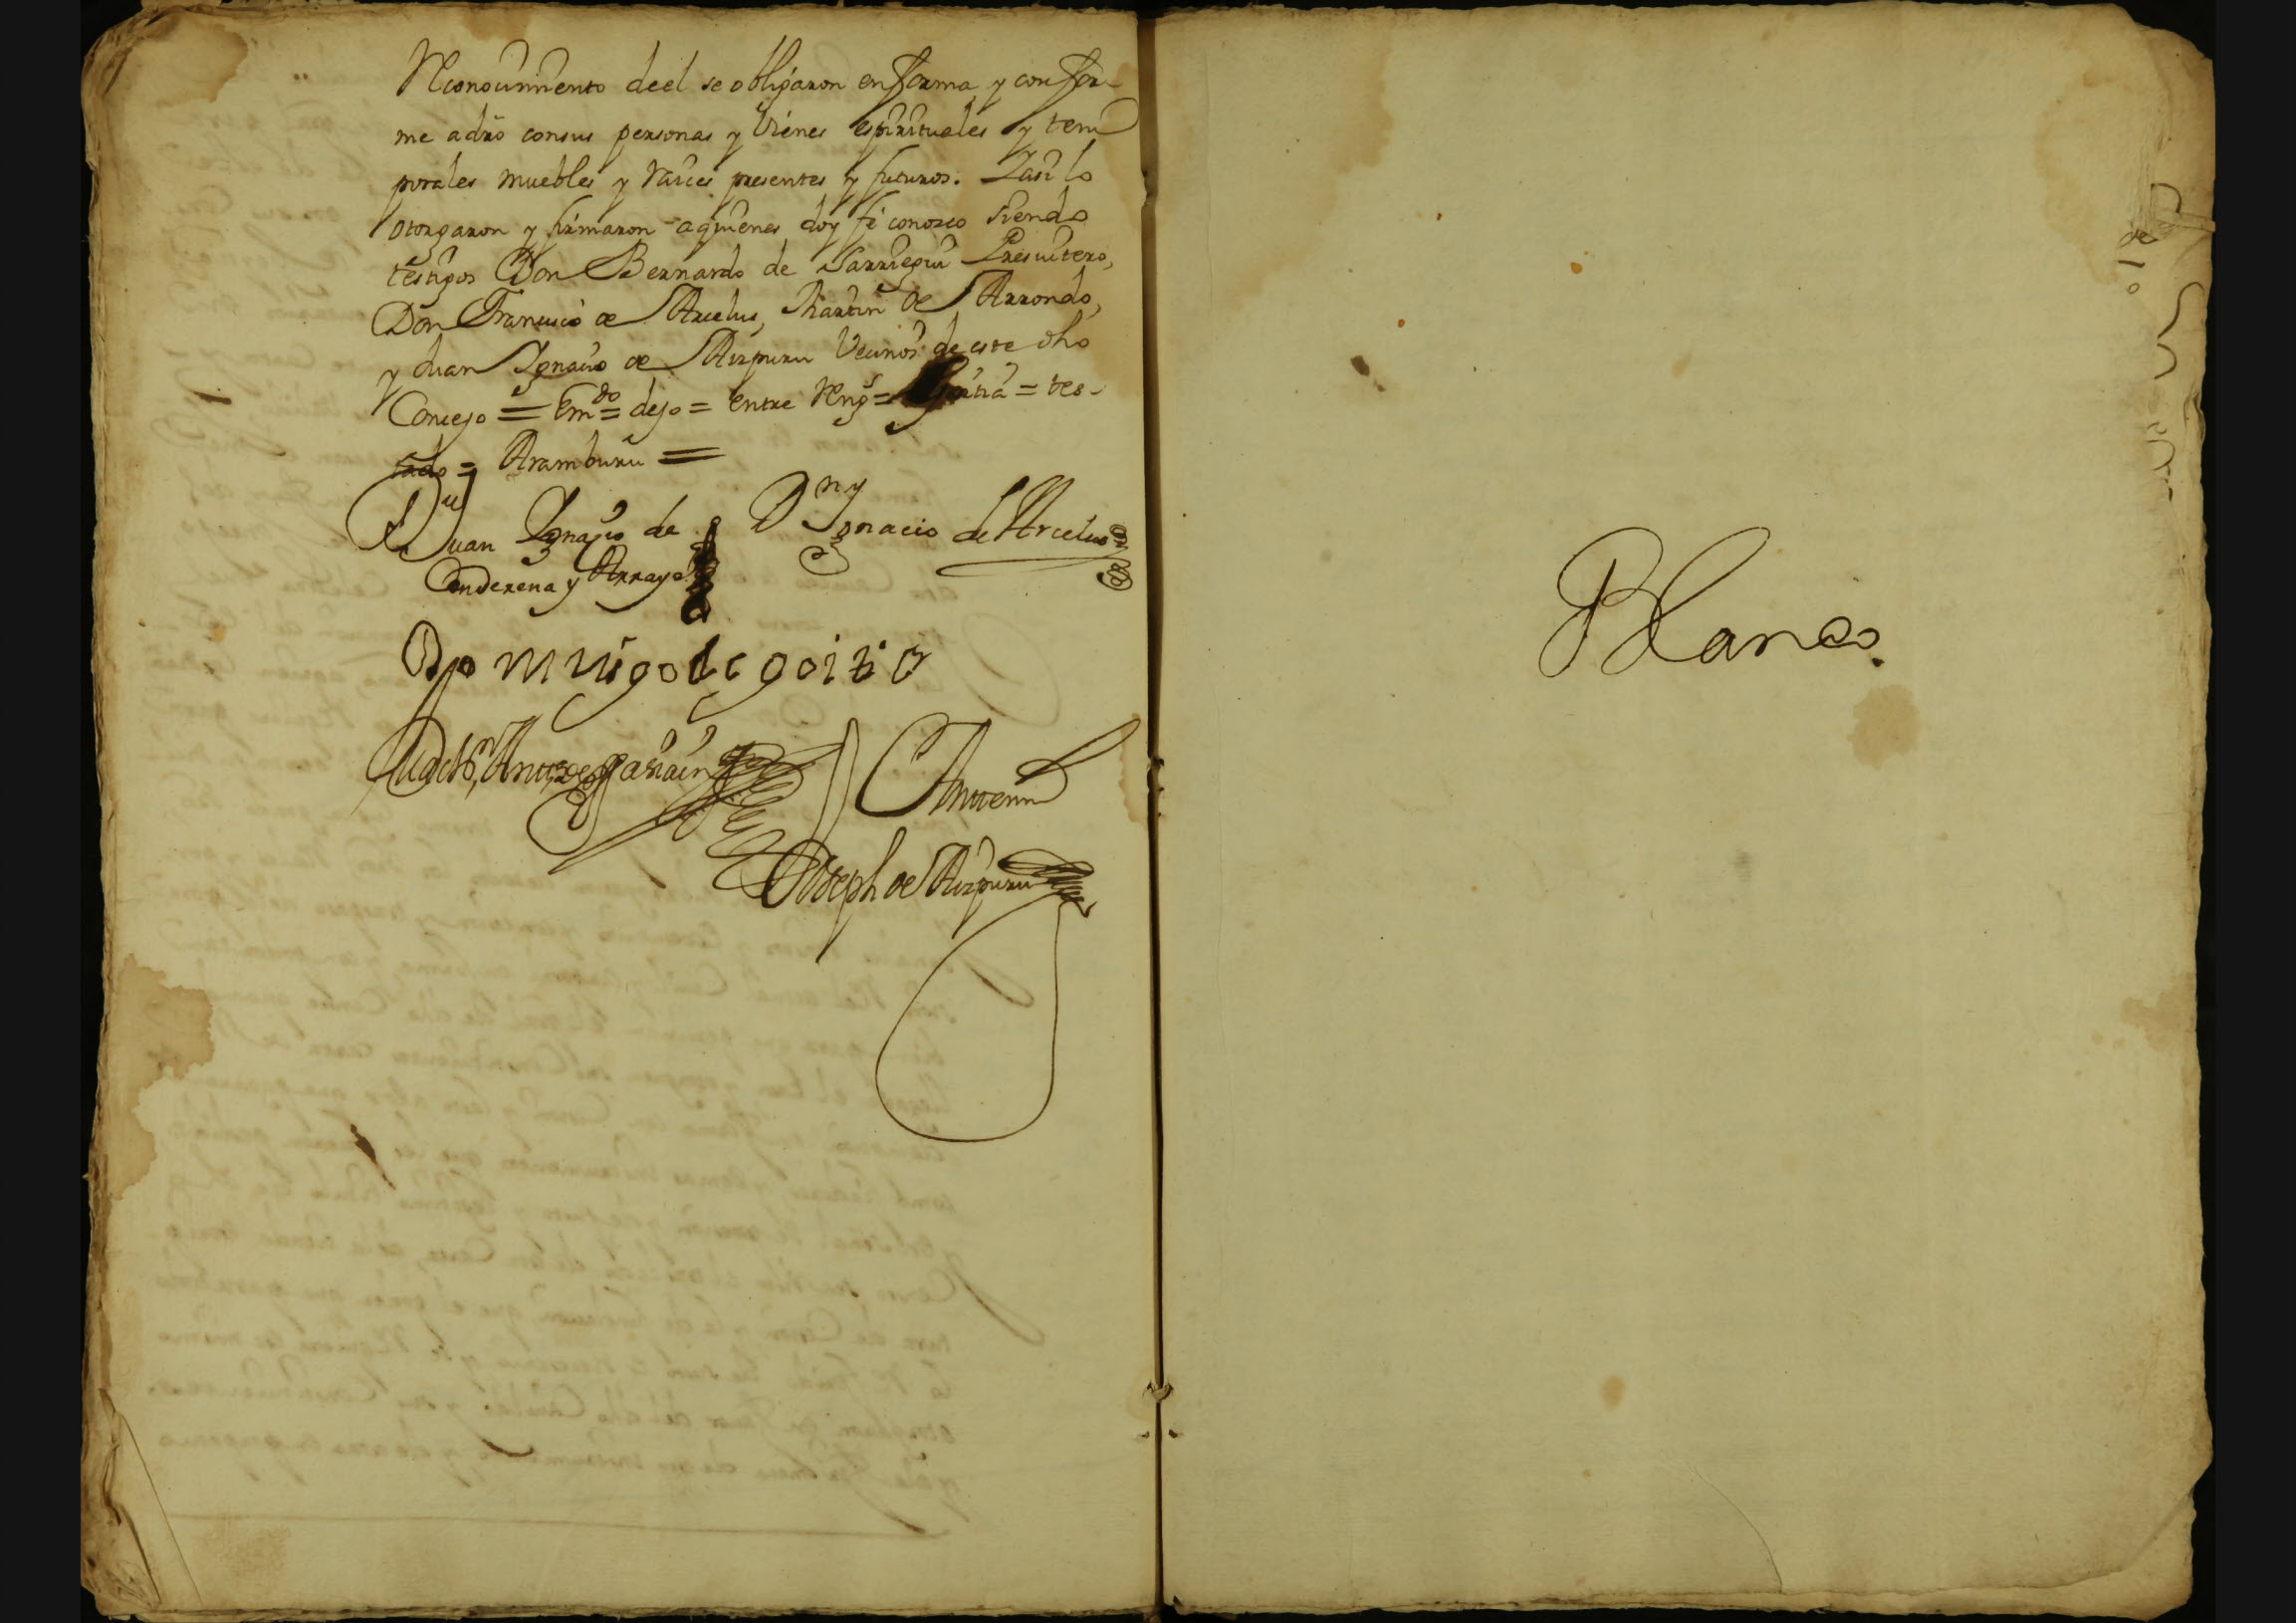 Reconocimiento de el se obligaron en forma, y confor-
me a dro con sus personas y vienes espirituales y tem
porales muebles y raices presentes y futuros. Y asi lo
otorgaron y firmaron a quienes doy fe conozco siendo
testigos Don Bernardo de Sarriegui Presvitero,
Don Francisco de Arcelus, Martin de Arrondo,
y Juan Ignacio de Aizpuru vecinos de este dho
Concejo = Emdo = dejo = entre reng.s = Goitia = tes-
tado = Aramburu =
Juan Ignacio de
Dn Ygnacio de Arcelus
Domingo de goitia
Antemi
Joseph de Aizpuru
Blanco.